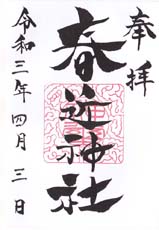 奉拝
春近神社
令和三年四月三日